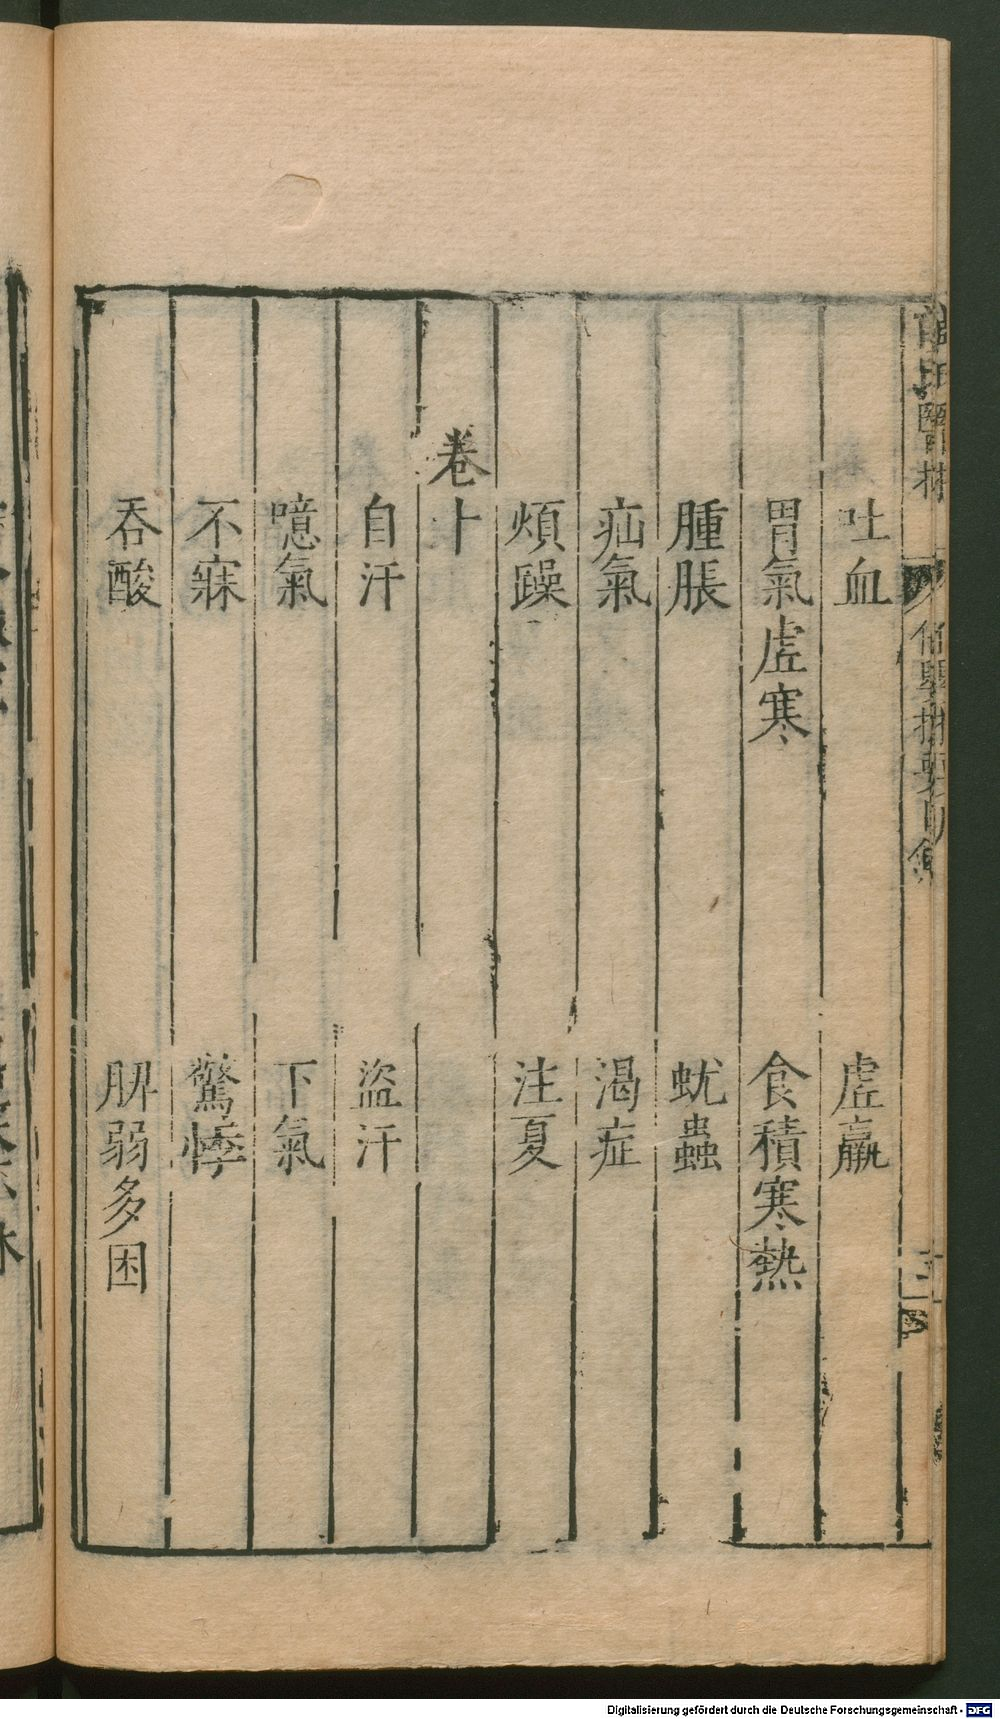 吐血　虛羸
胃氣虛寒　食積寒熱
腫脹　蚘蟲
疝氣　渴症
煩躁　注夏
卷十
自汗　盜汗
噫氣　下氣
不寐　驚悸
吞酸　脾弱多困
Digitalisierung gefördert durch die Deutsche Forschungsgemeinschaft - DFG